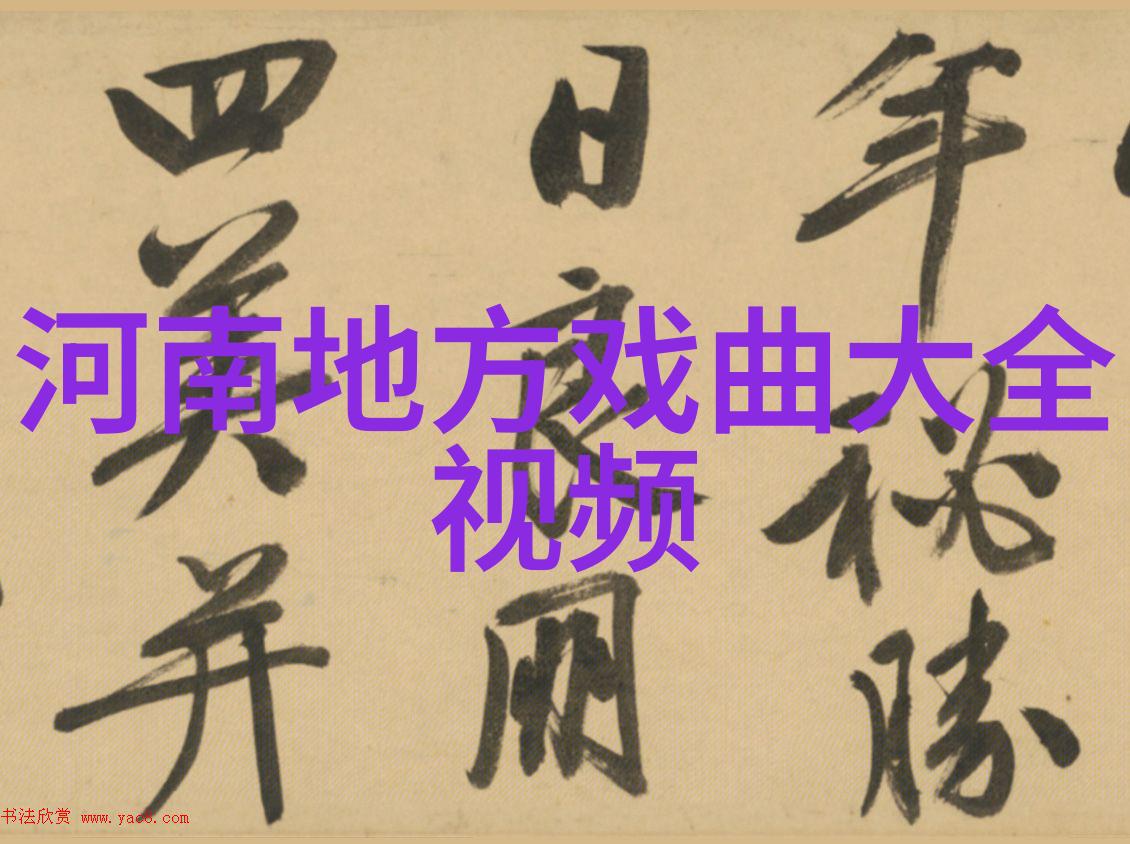 年秘勝
日良朋
四美并
河南地方戏曲大全
视频
书法欣赏 www.yac8.com